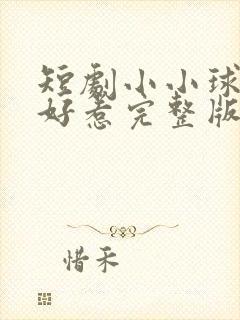 短劇小小球
好惹完整版
惜禾